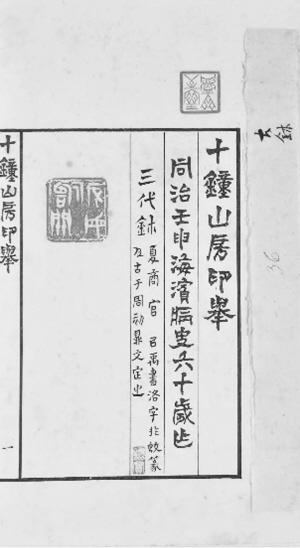 大鉨
36
十鐘山房印舉
同治壬申海濱病叟六十歲作
三代鉨
夏商官 㠯禹書洛字非蚊篆
及古于周初鼎文定之
十鐘山房印舉
一